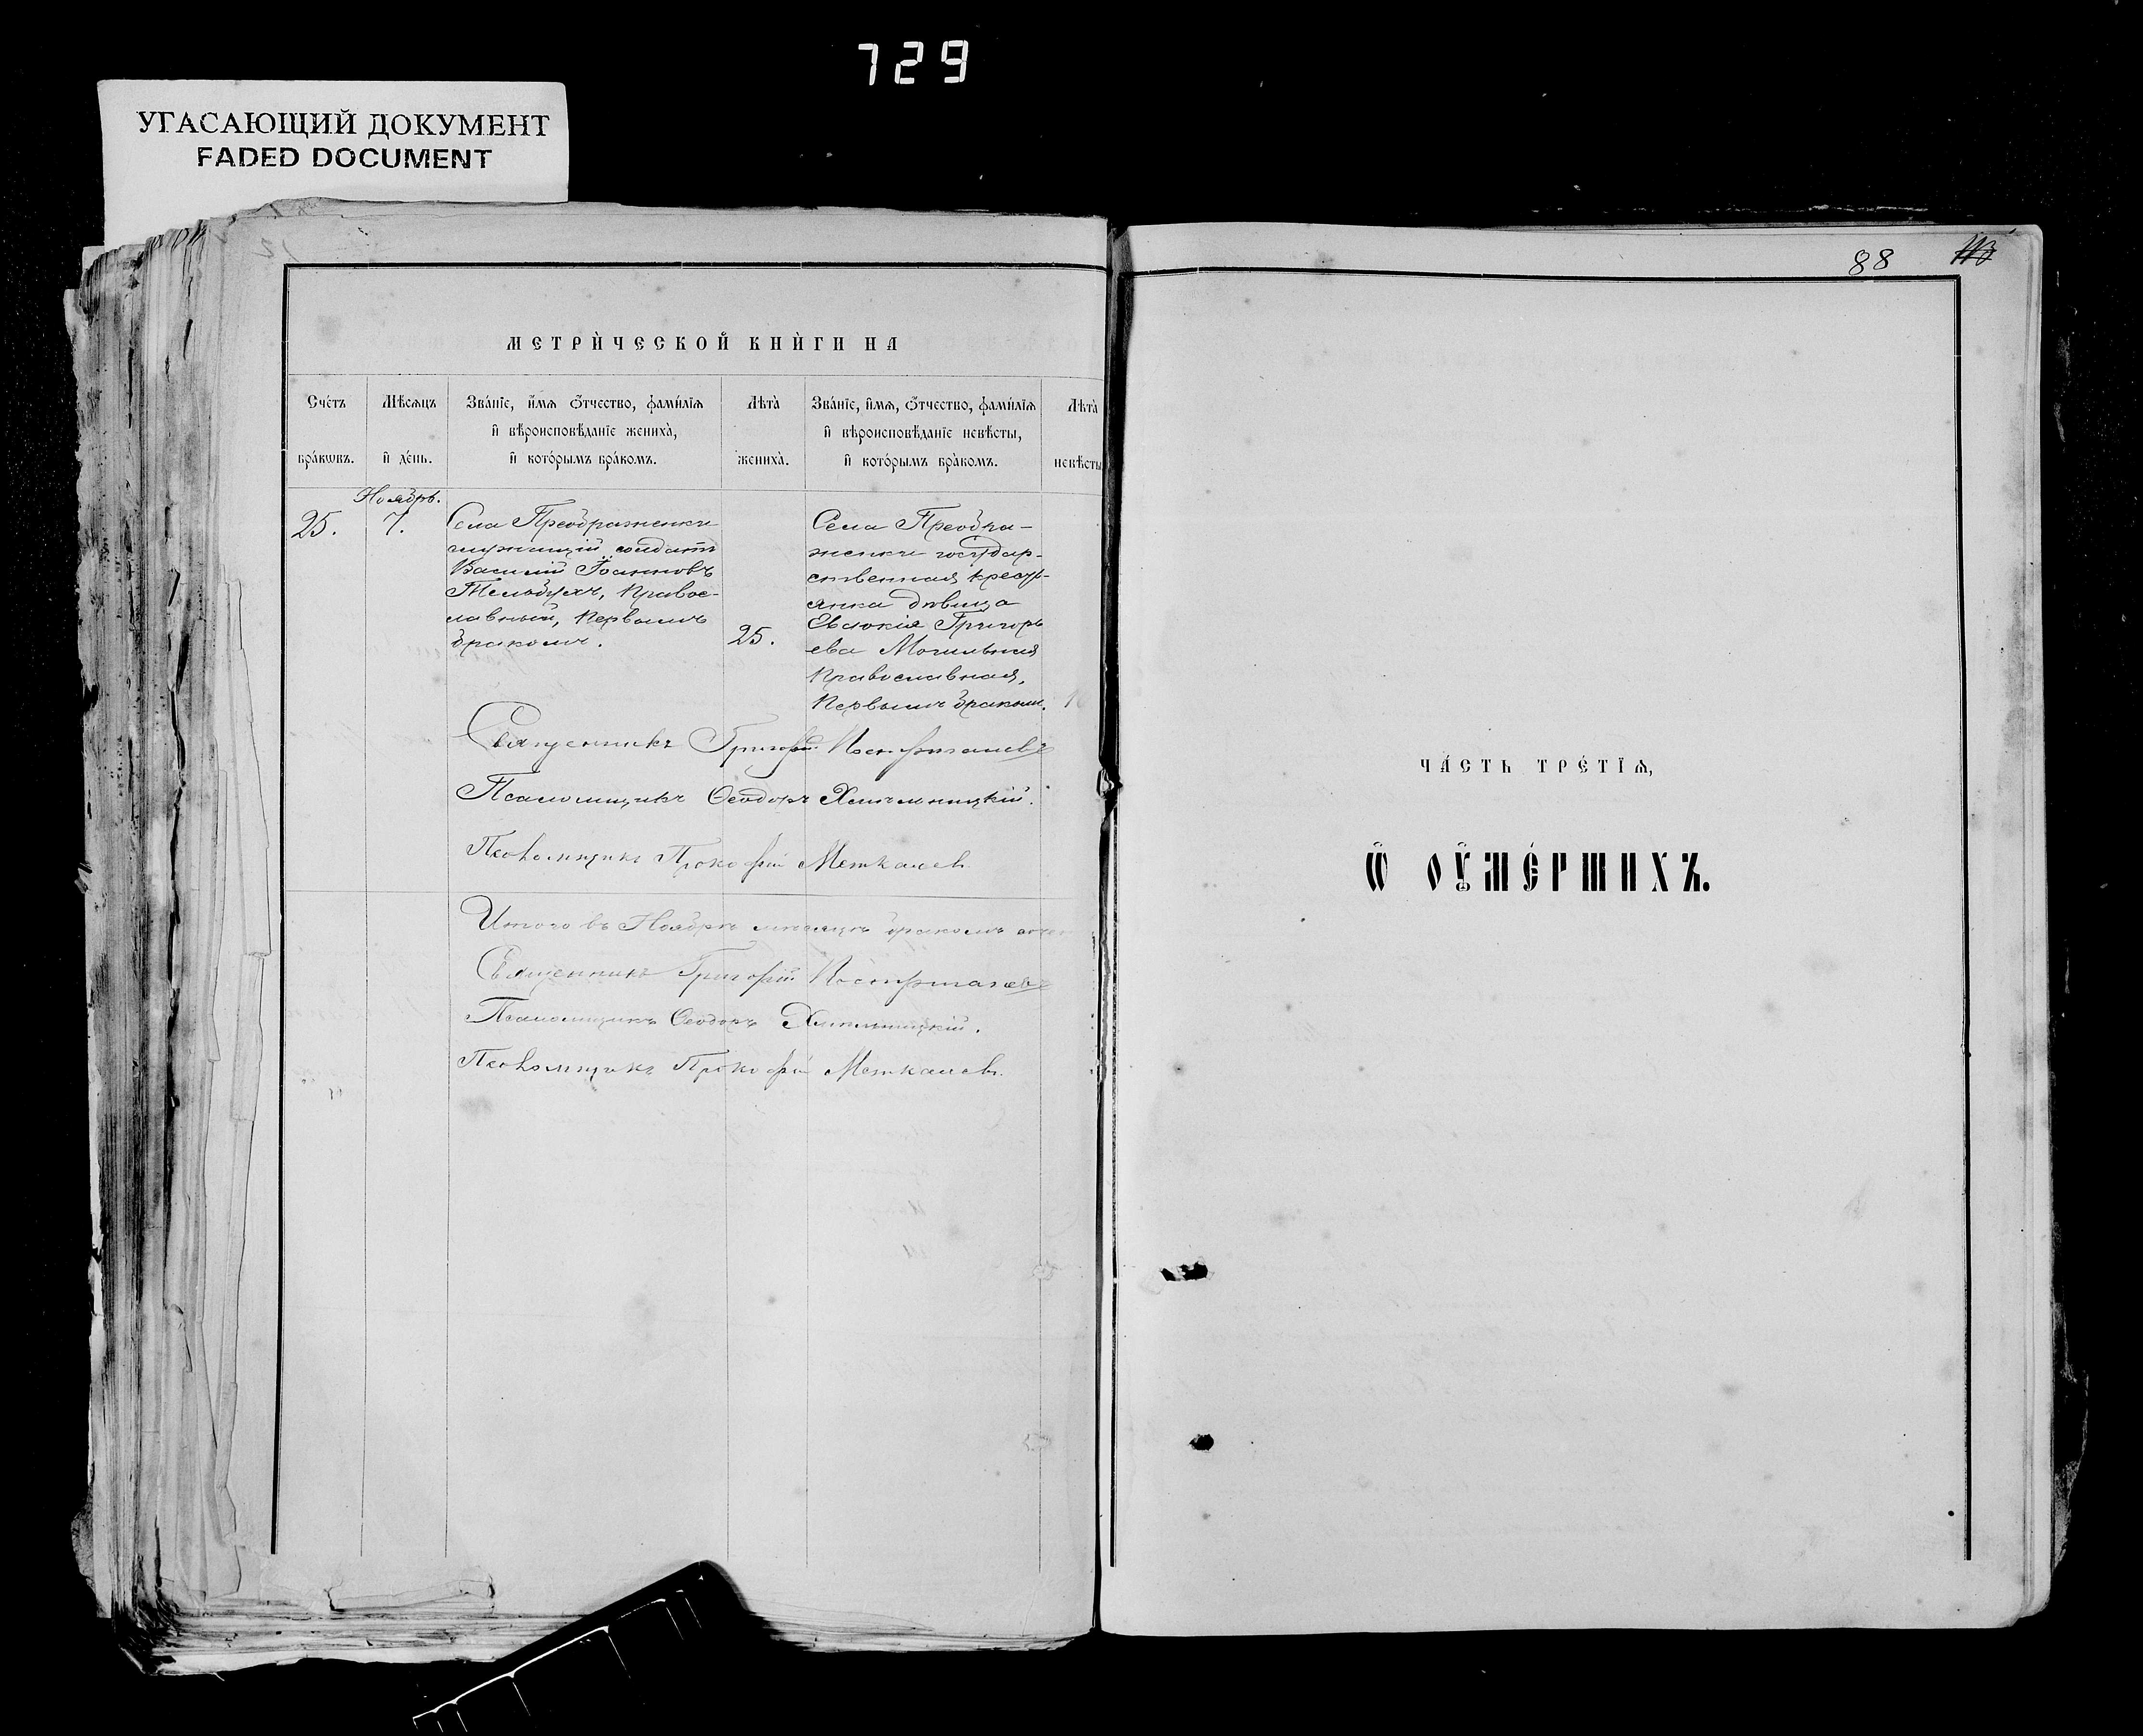 729
УГАСАЮЩИЙ ДОКУМЕНТ
FADED DOCUMENT
МЕТРИ́ЧЕСКОЙ КНИ́ГИ НА
Сче́тъ бра́кѡвъ.
Мѣ́сѧцъ и҆ де́нь.
Зва́нїе, и҆́мѧ ѻ҆́тчество, фами́лїѧ
и҆ вѣроисповѣ́данїе жениха̀,
и҆ кото́рымъ бра́комъ.
Лѣта̀ жениха̀.
Зва́нїе, и҆́мѧ, ѻ҆́тчество, фами́лїѧ
и҆ вѣроисповѣ́данїе невѣ́сты,
и҆ кото́рымъ бра́комъ.
Лѣта̀ невѣ́сты
Ноябрь.
25.
7.
Села Преображенки
служащій солдатъ
Василій Іоанновъ
православный, первымъ
бракомъ.
25.
Села Преобра-
женки государ-
ственная кресть-
янка дѣвица
Евдокія Григорь
ева Могильная
православная,
первымъ бракомъ.
Священникъ Григорій
Псаломщикъ Ѳеодоръ Хмельницкій.
Псаломщикъ Прокофій Меткалев
Итого въ Ноябрѣ мѣсяцѣ бракомъ
Священникъ Григорій
Псаломщикъ Ѳеодоръ Хмельницкій.
Псаломщикъ Прокофій Меткалев
88
113
ЧА́СТЬ ТРЕ́ТЇѦ,
Ѽ ОУ҆МЕ́РШИХЪ.